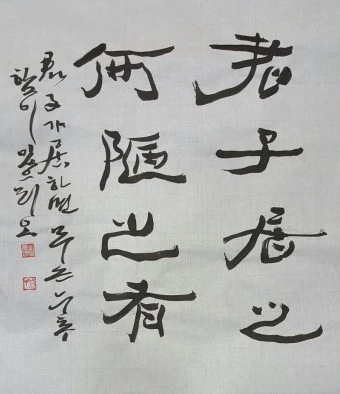 君子居之
何陋之有
君子가 居하면 무슨 누추
함이 있으리오